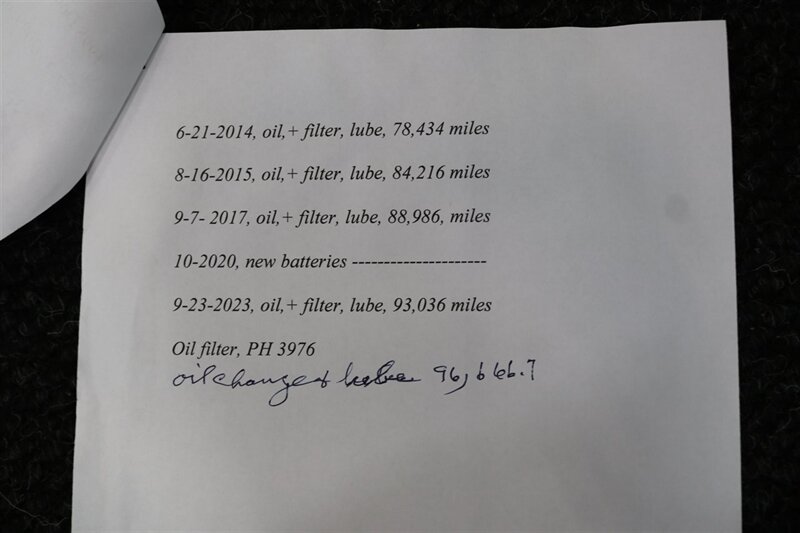 6-21-2014, oil,+ filter, lube, 78,434 miles
8-16-2015, oil,+ filter, lube, 84,216 miles
9-7- 2017, oil,+ filter, lube, 88,986, miles
10-2020, new batteries ---------------------
9-23-2023, oil,+ filter, lube, 93,036 miles
Oil filter, PH 3976
oil change & lube 96,666.7